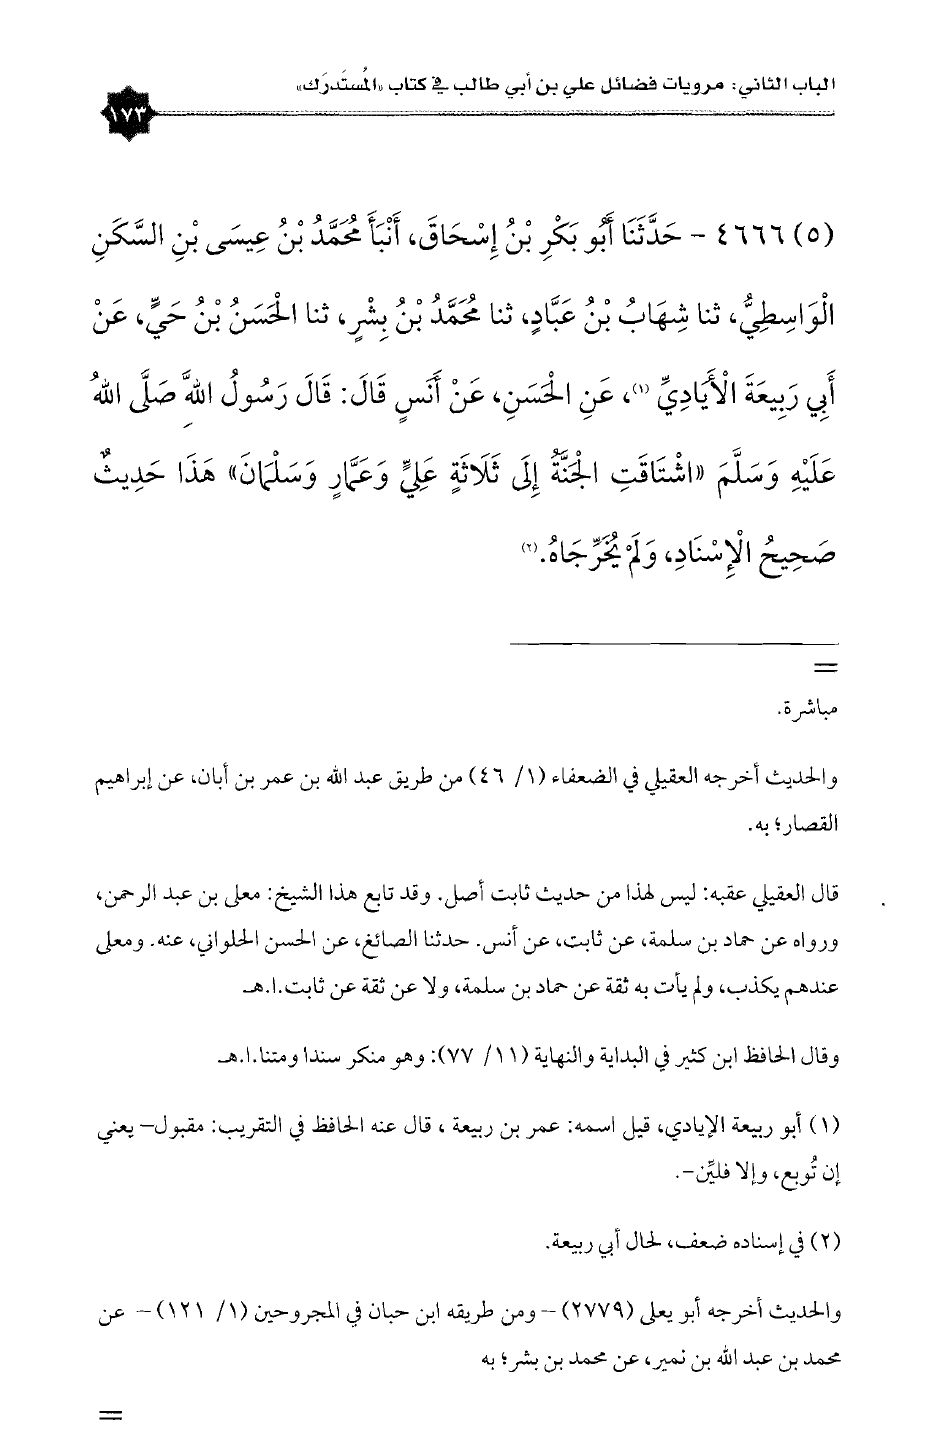 الباب الثاني: مرويات فضائل علي بن أبي طالب في كتاب «المُستَدرَك»
١٧٣
(٥) ٤٦٦٦ - حَدَّثَنَا أَبُو بَكْرِ بْنُ إِسْحَاقَ، أَنْبَأَ مُحَمَّدُ بْنُ عِيسَى بْنِ السَّكَنِ
الْوَاسِطِيُّ، ثنا شِهَابُ بْنُ عَبَّادٍ، ثنا مُحَمَّدُ بْنُ بِشْرٍ، ثنا الْحَسَنُ بْنُ حَيٍّ، عَنْ
أَبِي رَبِيعَةَ الْأَيَادِيِّ (١)، عَنِ الْحَسَنِ، عَنْ أَنَسٍ قَالَ: قَالَ رَسُولُ اللهِ صَلَّى اللهُ
عَلَيْهِ وَسَلَّمَ «اشْتَاقَتِ الْجَنَّةُ إِلَى ثَلَاثَةٍ عَلِيٍّ وَعَمَّارٍ وَسَلْمَانَ» هَذَا حَدِيثٌ
صَحِيحُ الْإِسْنَادِ، وَلَمْ يُخَرِّجَاهُ.(٢)
=
مباشرة.
والحديث أخرجه العقيلي في الضعفاء (١/ ٤٦) من طريق عبد الله بن عمر بن أبان، عن إبراهيم
القصار؛ به.
قال العقيلي عقبه: ليس لهذا من حديث ثابت أصل. وقد تابع هذا الشيخ: معلى بن عبد الرحمن،
ورواه عن حماد بن سلمة، عن ثابت، عن أنس. حدثنا الصائغ، عن الحسن الحلواني، عنه. ومعلى
عندهم يكذب، ولم يأت به ثقة عن حماد بن سلمة، ولا عن ثقة عن ثابت.ا.هـ
وقال الحافظ ابن كثير في البداية والنهاية (١١/ ٧٧): وهو منكر سندا ومتنا.ا.هـ
(١) أبو ربيعة الإيادي، قيل اسمه: عمر بن ربيعة ، قال عنه الحافظ في التقريب: مقبول– يعني
إن تُوبع، وإلا فليِّن-.
(٢) في إسناده ضعف، لحال أبي ربيعة.
والحديث أخرجه أبو يعلى (٢٧٧٩) – ومن طريقه ابن حبان في المجروحين (١/ ١٢١) – عن
محمد بن عبد الله بن نمير، عن محمد بن بشر؛ به
=